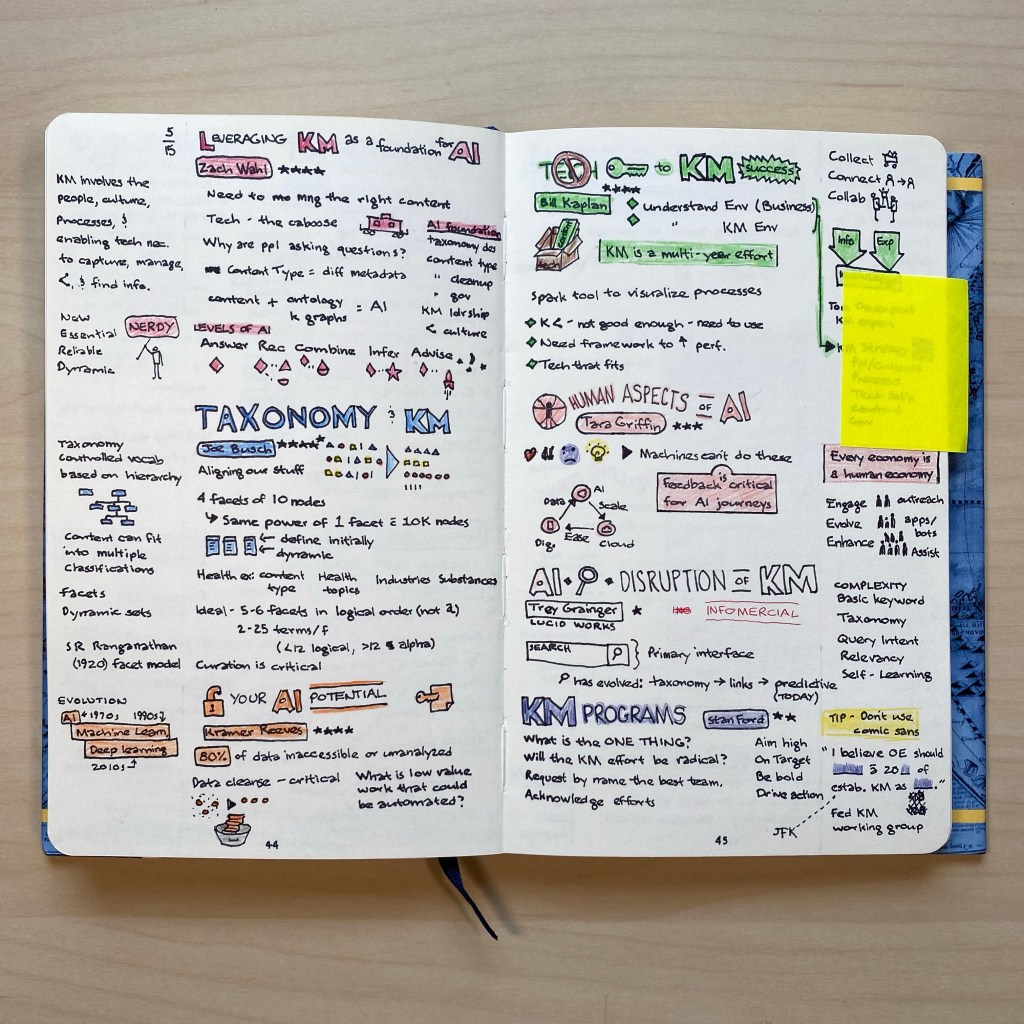 5
15
LEVERAGING KM as a foundation for AI
Zach Wahl ****
KM involves the
people, culture,
processes, &
enabling tech nec.
to capture, manage,
<, & find info.
New
Essential
Reliable
Dynamic
NERDY
Need to mng the right content
Tech - the caboose
Why are ppl asking questions?
Content Type = diff metadata
content + ontology = AI
k graphs
AI foundation
taxonomy des
content type
" cleanup
" gov
KM ldrship
< culture
LEVELS OF AI
Answer Rec Combine Infer Advise
TAXONOMY & KM
Joe Busch *****
Aligning our stuff
Taxonomy
controlled vocab
based on hierarchy
Content can fit
into multiple
classifications
Facets
Dynamic sets
SR Ranganathan
(1920) facet model
4 facets of 10 nodes
↳ Same power of 1 facet ≥ 10K nodes
← define initially
← dynamic
Health ex: content type Health topics Industries Substances
Ideal - 5-6 facets in logical order (not 2)
2-25 terms/f
(<12 logical, >12 alpha)
Curation is critical
YOUR AI POTENTIAL
Kramer Reeves ****
EVOLUTION
AI ← 1970s 1990s
Machine Learn
Deep learning
2010s
80% of data inaccessible or unanalyzed
Data cleanse - critical
What is low value
work that could
be automated?
44
TECH KEY to KM SUCCESS
****
Bill Kaplan
understand Env (Business)
" KM Env
content
tech
KM is a multi-year effort
Spark tool to visualize processes
K< - not good enough - need to use
Need framework to ↑ perf.
Tech that fits
Collect
Connect
Collab
Info Exp
KM Strategy
HUMAN ASPECTS OF AI
Tara Griffin ***
Machines can't do these
Feedback is critical
for AI journeys
Data AI
Scale
Dig. Ease Cloud
Every economy is
a human economy
Engage outreach
Evolve apps/
bots
Enhance Assist
AI + DISRUPTION OF KM
Trey Grainger *
LUCID WORKS
INFOMERCIAL
SEARCH
Primary interface
has evolved: taxonomy → links → predictive
(TODAY)
COMPLEXITY
Basic keyword
Taxonomy
Query Intent
Relevancy
Self-Learning
KM PROGRAMS
Stan Ford **
What is the ONE THING?
Will the KM effort be radical?
Request by name the best team.
Acknowledge efforts
Aim high
On Target
Be bold
Drive action
TIP - Don't use
comic sans
"I believe OE should
20 of
estab. KM as "
JFK
Fed KM
working group
45